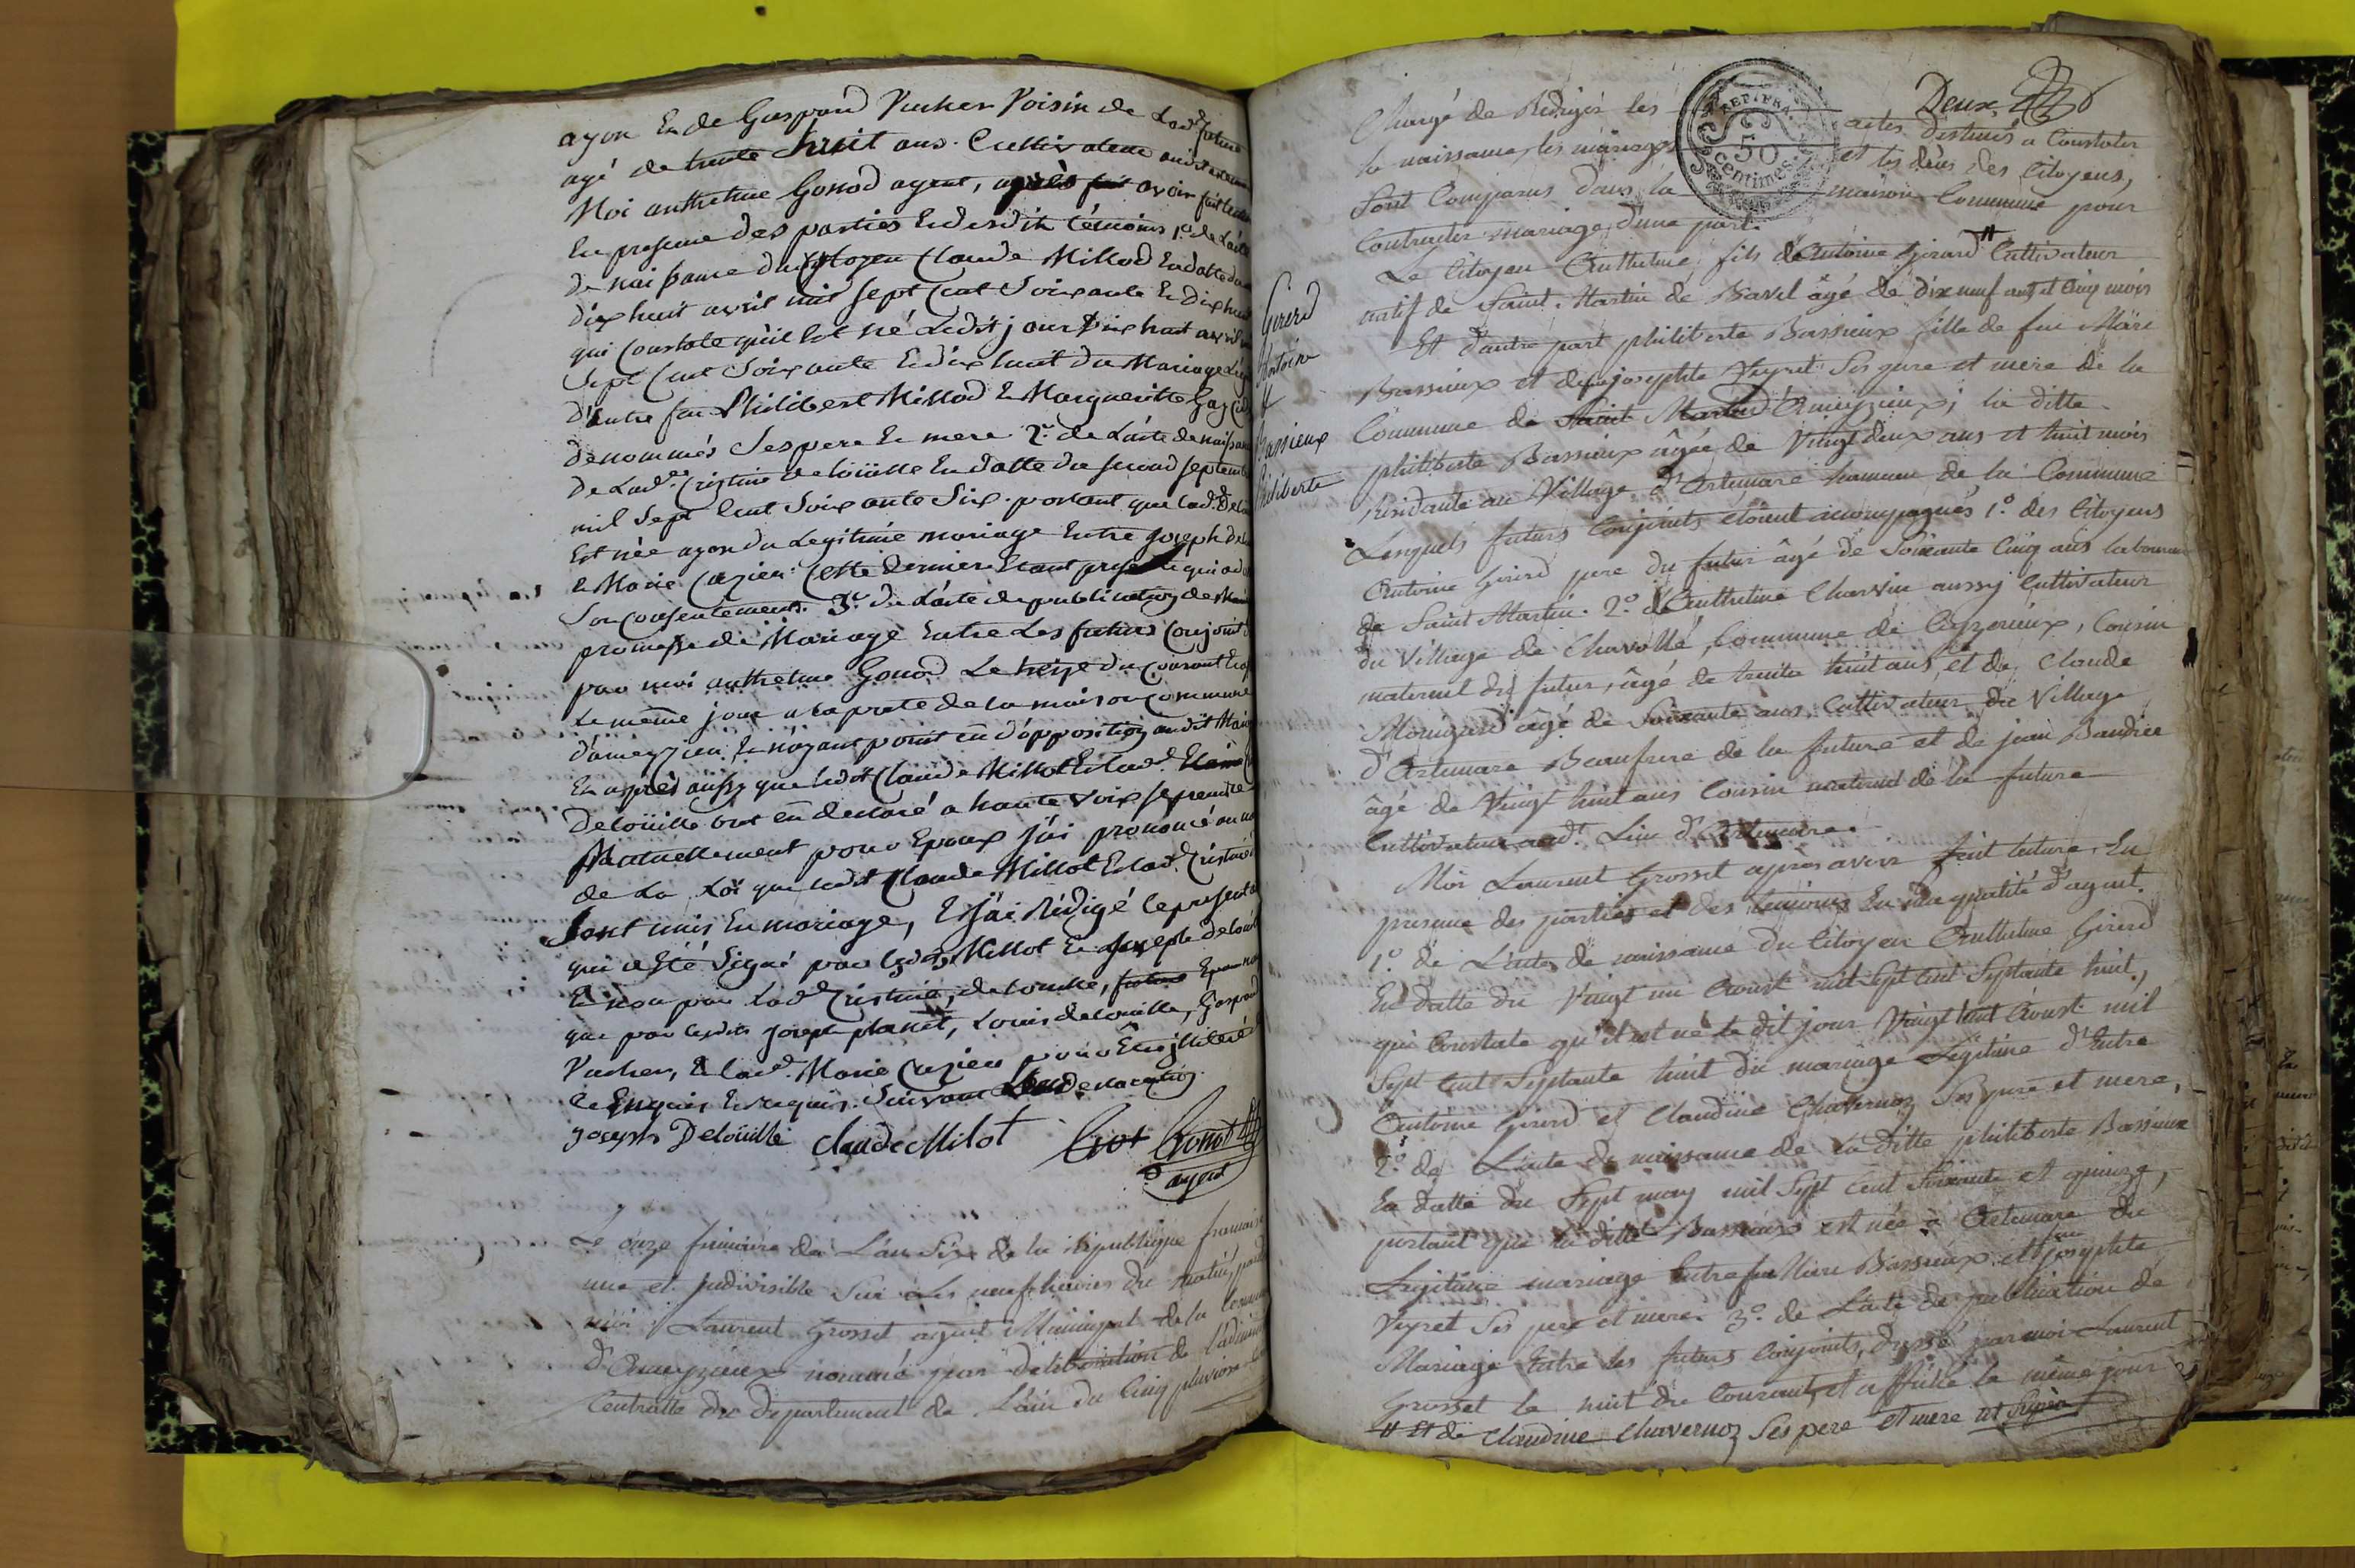 ayon Et de Gaspard Vucher Voisin de Lad. future
agé de trente huit ans. Cultivateur
Moi anthelme Gonod agent, après avoir fait lecture
En presence des parties Et desdits témoins 1.º de L'acte
de naissance du Citoyen Claude Millod En datte du
dix huit avril mil sept Cent Soixante Et dix huit
qui Constate qu'il Est né Ledit jour dix huit avril
Sept Cent Soixante Et dix huit du Mariage
d'Entre feu Philibert Millod Et Marguerite
dénommés Ses pere Et mere 2.º de L'acte de naissance
De Lad. Cristine Deloüille En datte du second septembre
mil Sept Cent Soixante Six portant que lad.
Est née ayon du Legitime mariage Entre joseph
Et Marie Cuzien. Cette derniere Etant presente qui a
Son Consentement. 3.º de L'acte de publication de
promesse de Mariage Entre Les futurs Conjoints
par moi anthelme Gonod Le treize du Courant
Le même jour a la porte de la maison Commune
d'ameyzieu Et n'ayant point eü d'opposition audit
Et après aussy que ledit Claude Millot Et lad.
Deloüille ont eü declaré a haute voix se prendre
Mutuellement pour Epoux j'ai prononcé au nom
de La Loi que ledit Claude Millot Et lad. Cristine
Sont unis En mariage, Et j'ai Rédigé le present
qui a Eté Signé par Millot Et joseph Delouille
Et non par Lad. Cristine delouille, Epouse
que par lesdits joseph planet, Louis delouille, Gaspard
Vucher, Et lad. Marie Cuzien pour Etre jlliteré
de Enquis Et requis. Suivant Leur declaration.
joseph Deloüille Claude Milot Gonod
agent
Le onze frimaire de L'an Six de la république francaise
une et Indivisible Sur Les neuf heures du matin, par
moi Laurent Grosset agent Municipal de la Commune
d'Ameyzieux nommé par déliberation de L'administration
Centralle du departement de L'ain du Cinq pluviose
Deux
Chargé de Rediger les actes destinés a Constater
la naissance, les mariages et les décès des Citoyens,
Sont Comparus dans la maison Commune pour
Contracter mariage d'une part.
REP. FRA.
50
Centimes.
Girerd
Antoine
et
Bassieux
Philiberte
Le Citoyen Anthelme fils d'Antoine Girard Cultivateur
natif de Saint Martin de Bavel âgé de dix neuf ans et Cinq mois
Et d'autre part philiberte Bassieux fille de feu Marc
Bassieux et de josephte Veyret Ses pere et mere de la
Commune de d'Ameyzieux; la ditte
philiberte Bassieux âgée de Vingt deux ans et huit mois
Residante au Village d'Artemare hameau de la Commune
Lesquels futurs Conjoints étoient acompagnés 1.º des Citoyens
Antoine Girerd pere du futur âgé de Soixante Cinq ans laboureur
de Saint Martin. 2.º d'Anthelme Charvin aussy Cultivateur
du Village de Chavollé, Commune de Ceyzerieux, Cousin
maternel du futur, âgé de trente huit ans, et de Claude
Mongard âgé de Soixante ans Cultivateur du Village
d'Artemare Beaufrere de la future et de jean Baudrer
âgé de Vingt huit ans Cousin maternel de la future
Cultivateur aud.t Lieu d'Artemare.
Moi Laurent Grosset apres avoir fait lecture En
presence des parties et des temoins En ma qualité d'agent.
1.º de L'acte de naissance du Citoyen Anthelme Girerd
En datte du Vingt un Aoust mil Sept Cent Septante huit,
qui Constate qu'il est né le dit jour Vingt un Aoust mil
Sept Cent Septante huit du mariage Legitime d'Entre
Antoine Girerd et Claudine Chavernoz Ses pere et mere,
2.º de L'acte de naissance de la ditte philiberte Bassieux
En datte du Sept may mil Sept Cent Soixante et quinze,
portant que la ditte Bassieux est née à Artemare du
Legitime mariage Entre feu Marc Bassieux et josephte
Veyret Ses pere et mere. 3.º de L'acte de publication de
Mariage Entre les futurs Conjoints, dressé par moi Laurent
Grosset le huit du Courant, et affiché le même jour
# Et de Claudine Chavernoz Ses pere et mere